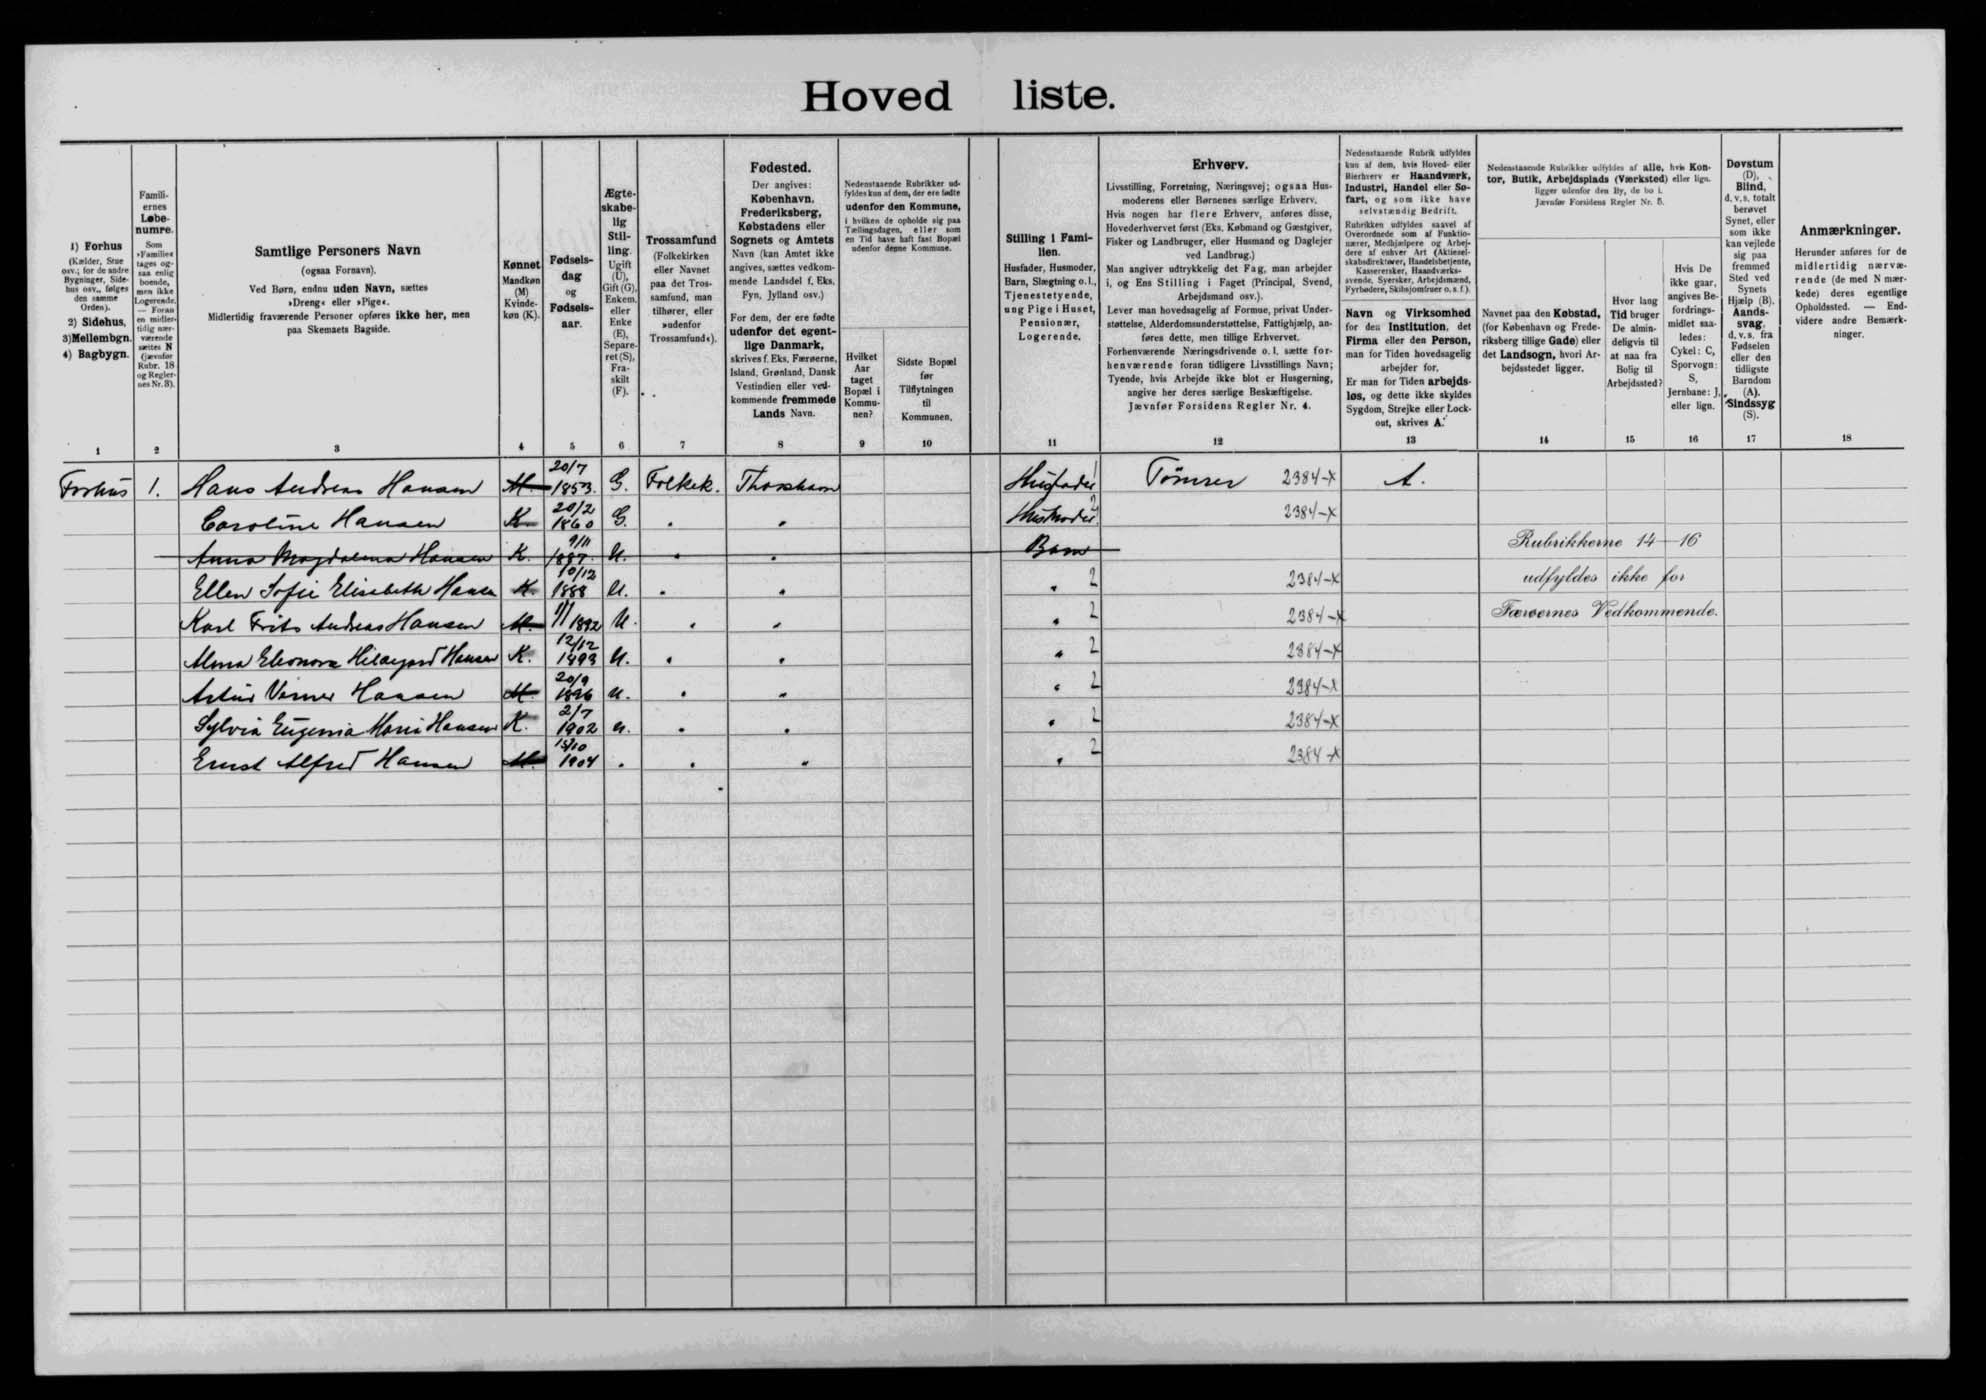 Hoved liste.
1) Forhus
(Kælder, Stue
osv.; for de andre
Bygninger, Side-
hus osv., følges
den samme
Orden).
2) Sidehus,
3)Mellembgn.
4) Bagbygn.
1
Famili-
ernes
Løbe-
numre.
Som
»Familie«
tages og-
saa enlig
boende,
men ikke
Logerende.
— Foran
en midler-
tidig nær-
værende
sættes N
(jævnfør
Rubr. 18
og Regler-
nes Nr. 3).
2
Samtlige Personers Navn
(ogsaa Fornavn).
Ved Børn, endnu uden Navn, sættes
»Dreng« eller »Pige«.
Midlertidig fraværende Personer opføres ikke her, men
paa Skemaets Bagside.
3
Kønnet
Mandkøn
(M)
Kvinde-
køn (K).
4
Fødsels-
dag
og
Fødsels-
aar.
5
Ægte-
skabe-
lig
Stil-
ling.
Ugift
(U),
Gift (G),
Enkem.
eller
Enke
(E),
Separe-
ret (S),
Fra-
skilt
(F).
6
Trossamfund
(Folkekirken
eller Navnet
paa det Tros-
samfund, man
tilhører, eller
»udenfor
Trossamfund«).
7
Fødested.
Der angives:
København,
Frederiksberg,
Købstadens eller
Sognets og Amtets
Navn (kan Amtet ikke
angives, sættes vedkom-
mende Landsdel f. Eks.
Fyn, Jylland osv.)
For dem, der ere fødte
udenfor det egent-
lige Danmark,
skrives f. Eks. Færøerne,
Island, Grønland, Dansk
Vestindien eller ved-
kommende fremmede
Lands Navn.
8
Nedenstaaende Rubrikker ud-
fyldes kun af dem, der ere fødte
udenfor den Kommune,
i hvilken de opholde sig paa
Tællingsdagen, eller som
en Tid have haft fast Bopæl
udenfor denne Kommune.
Hvilket
Aar
taget
Bopæl i
Kommu-
nen?
9
Sidste Bopæl
før
Tilflytningen
til
Kommunen.
10
Stilling i Fami-
lien.
Husfader, Husmoder,
Barn, Slægtning o.l.,
Tjenestetyende,
ung Pige i Huset,
Pensionær,
Logerende.
11
Erhverv.
Livsstilling, Forretning, Næringsvej; ogsaa Hus-
moderens eller Børnenes særlige Erhverv.
Hvis nogen har flere Erhverv, anføres disse,
Hovederhvervet først (Eks. Købmand og Gæstgiver,
Fisker og Landbruger, eller Husmand og Daglejer
ved Landbrug.)
Man angiver udtrykkelig det Fag, man arbejder
i, og Ens Stilling i Faget (Principal, Svend,
Arbejdsmand osv.).
Lever man hovedsagelig af Formue, privat Under-
støttelse, Alderdomsunderstøttelse, Fattighjælp, an-
føres dette, men tillige Erhvervet.
Forhenværende Næringsdrivende o. l. sætte for-
henværende foran tidligere Livsstillings Navn;
Tyende, hvis Arbejde ikke blot er Husgerning,
angive her deres særlige Beskæftigelse.
Jævnfør Forsidens Regler Nr. 4.
12
Nedenstaaende Rubrik udfyldes
kun af dem, hvis Hoved- eller
Bierhverv er Haandværk,
Industri, Handel eller Sø-
fart, og som ikke have
selvstændig Bedrift.
Rubrikken udfyldes saavel af
Overordnede som af Funktio-
nærer, Medhjælpere og Arbej-
dere af enhver Art (Aktiesel-
skabsdirektører, Handelsbetjente,
Kassererskér, Haandværks-
svende, Syersker, Arbejdsmænd,
Fyrbødere, Skibsjomfruer o. s. f.).
Navn og Virksomhed
for den Institution, det
Firma eller den Person,
man for Tiden hovedsagelig
arbejder for.
Er man for Tiden arbejds-
løs, og dette ikke skyldes
Sygdom, Strejke eller Lock-
out, skrives A.
13
Nedenstaaende Rubrikker udfyldes af alle, hvis Kon-
tor, Butik, Arbejdsplads (Værksted) eller lign.
ligger udenfor den By, de bo i.
Jævnfør Forsidens Regler Nr. 5.
Navnet paa den Købstad,
(for København og Frede-
riksberg tillige Gade) eller
det Landsogn, hvori Ar-
bejdsstedet ligger.
14
Hvor lang
Tid bruger
De almin-
deligvis til
at naa fra
Bolig til
Arbejdssted?
15
Hvis De
ikke gaar,
angives Be-
fordrings-
midlet saa-
ledes:
Cykel: C,
Sporvogn:
S,
Jernbane: J,
eller lign.
16
Døvstum
(D),
Blind,
d. v. s. totalt
berøvet
Synet, eller
som ikke
kan vejlede
sig paa
fremmed
Sted ved
Synets
Hjælp (B).
Aands-
svag,
d. v. s. fra
Fødselen
eller den
tidligste
Barndom
(A).
Sindssyg
(S).
17
Anmærkninger.
Herunder anføres for de
midlertidig nærvæ-
rende (de med N mær-
kede) deres egentlige
Opholdssted. — End-
videre andre Bemærk-
ninger.
18
Forhus 1. Hans Andreas Hansen M. 20/7 1853. G. Folkek. Thorshavn Husfader 1 Tømrer 2384-x A.
Caroline Hansen K 20/2 1860 G. " " Husmoder 2 2384-x
Anna Magdalena Hansen K. 9/11 1887 U. " " Barn
Rubrikkerne 14-16
Ellen Sofie Elisabeth Hansen K. 10/12 1888 U. " " " 2 2384-x
udfyldes ikke for
Karl Frits Andreas Hansen M. 1/1 1892 U. " " " 2 2384-x
Færøernes Vedkommende.
Alma Eleonora Hildegard Hansen K. 12/12 1893 U. " " " 2 2384-x
Artur Verner Hansen M. 20/9 1896 U. " " " 2 2384-x
Sylvia Eugenia Maria Hansen K. 2/7 1902 U. " " " 2 2384-x
Ernst Alfred Hansen M. 1904 " " " " 2 2384-x